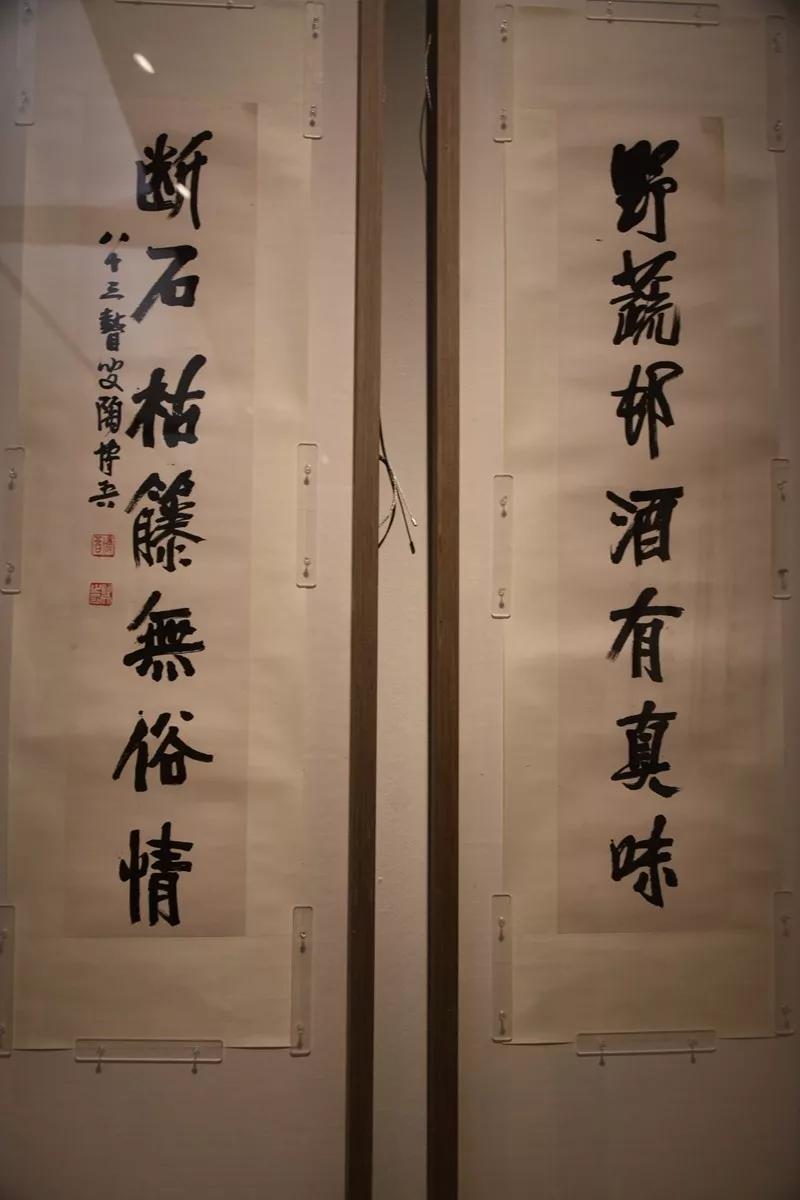 野蔬邨酒有真味
断石枯籐無俗情
八十三瞽叟陶博吾